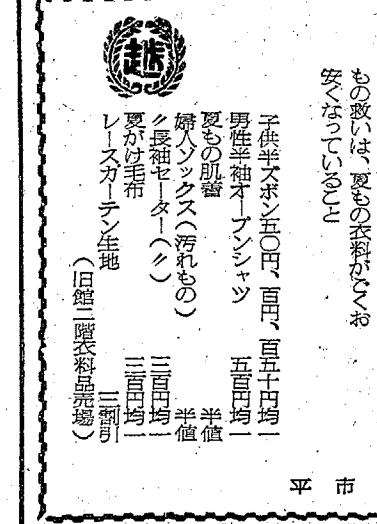 もの救いは、夏もの衣料がごくお
安くなっていること
越
子供半ズボン五〇円、百円、百五十円均一
男性半袖オープンシャツ 五百円均一
夏もの肌着 半値
婦人ソックス(汚れもの) 半値
〃長袖セーター(〃) 三百円均一
夏がけ毛布 三百円均一
レースカーテン生地 三割引
(旧館二階衣料品売場)
平市